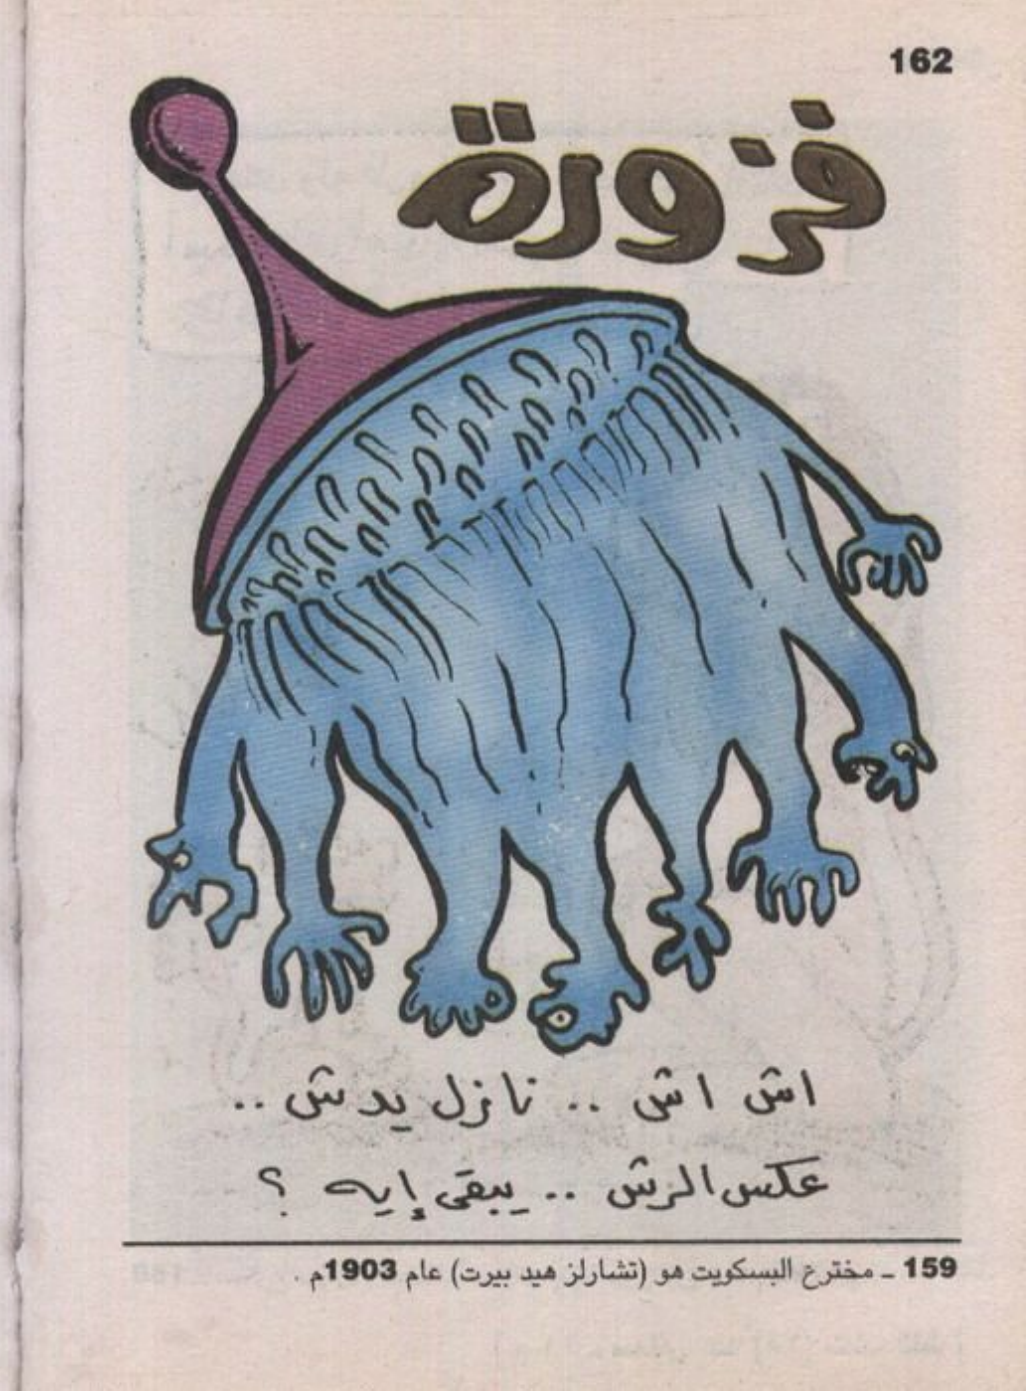 162
فزورة
اش اش .. نازل يدش ..
عكس الرش .. يبقى إيه ؟
159 ـ مخترع البسكويت هو (تشارلز هيد بيرت) عام 1903م .